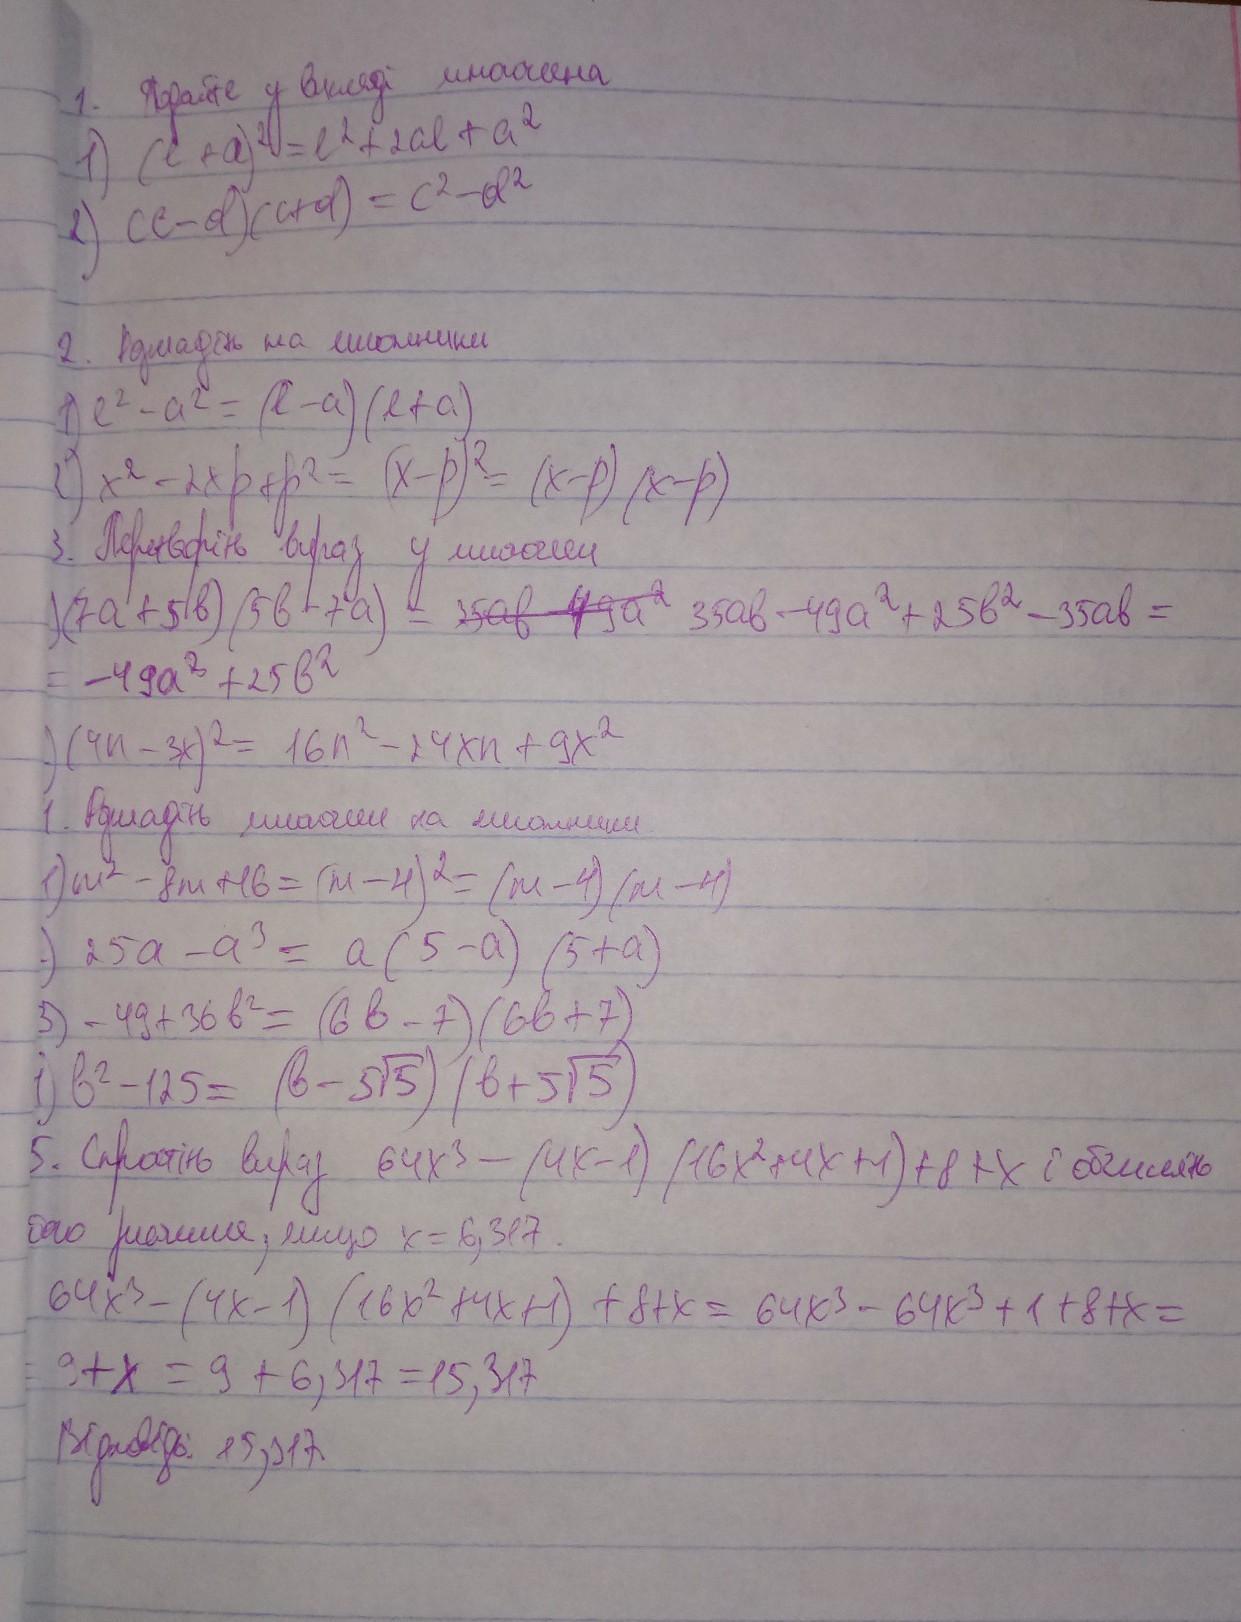 1. Подайте у вигляді многочлена
1) (l + a)² = l² + 2al + a²
2) (c - d)(c+d) = c² - d²
2. Розкладіть на множники
1) l² - a² = (l - a)(l + a)
2) x² - 2xp + p² = (x-p)² = (x-p)(x-p)
3. Перетворіть вираз у многочлен
)(7a + 5b)(5b - 7a) = 35ab - 49a² 35ab - 49a² + 25b² - 35ab =
= -49a² + 25b²
)(4n - 3x)² = 16n² - 24xn + 9x²
1. Розкладіть многочлен на множники
1) m² - 8m + 16 = (m - 4)² = (m - 4)(m - 4)
) 25a - a³ = a(5 - a)(5 + a)
3) -49 + 36b² = (6b - 7)(6b + 7)
1) b² - 125 = (b - 5√5)(b + 5√5)
5. Спростіть вираз 64x³ - (4x-1)(16x²+4x+1)+8+x і обчисліть
його значення, якщо x = 6,317.
64x³ - (4x-1)(16x²+4x+1) + 8+x = 64x³ - 64x³ + 1 + 8+x =
= 9+x = 9 + 6,317 = 15,317
Відповідь: 15,317.